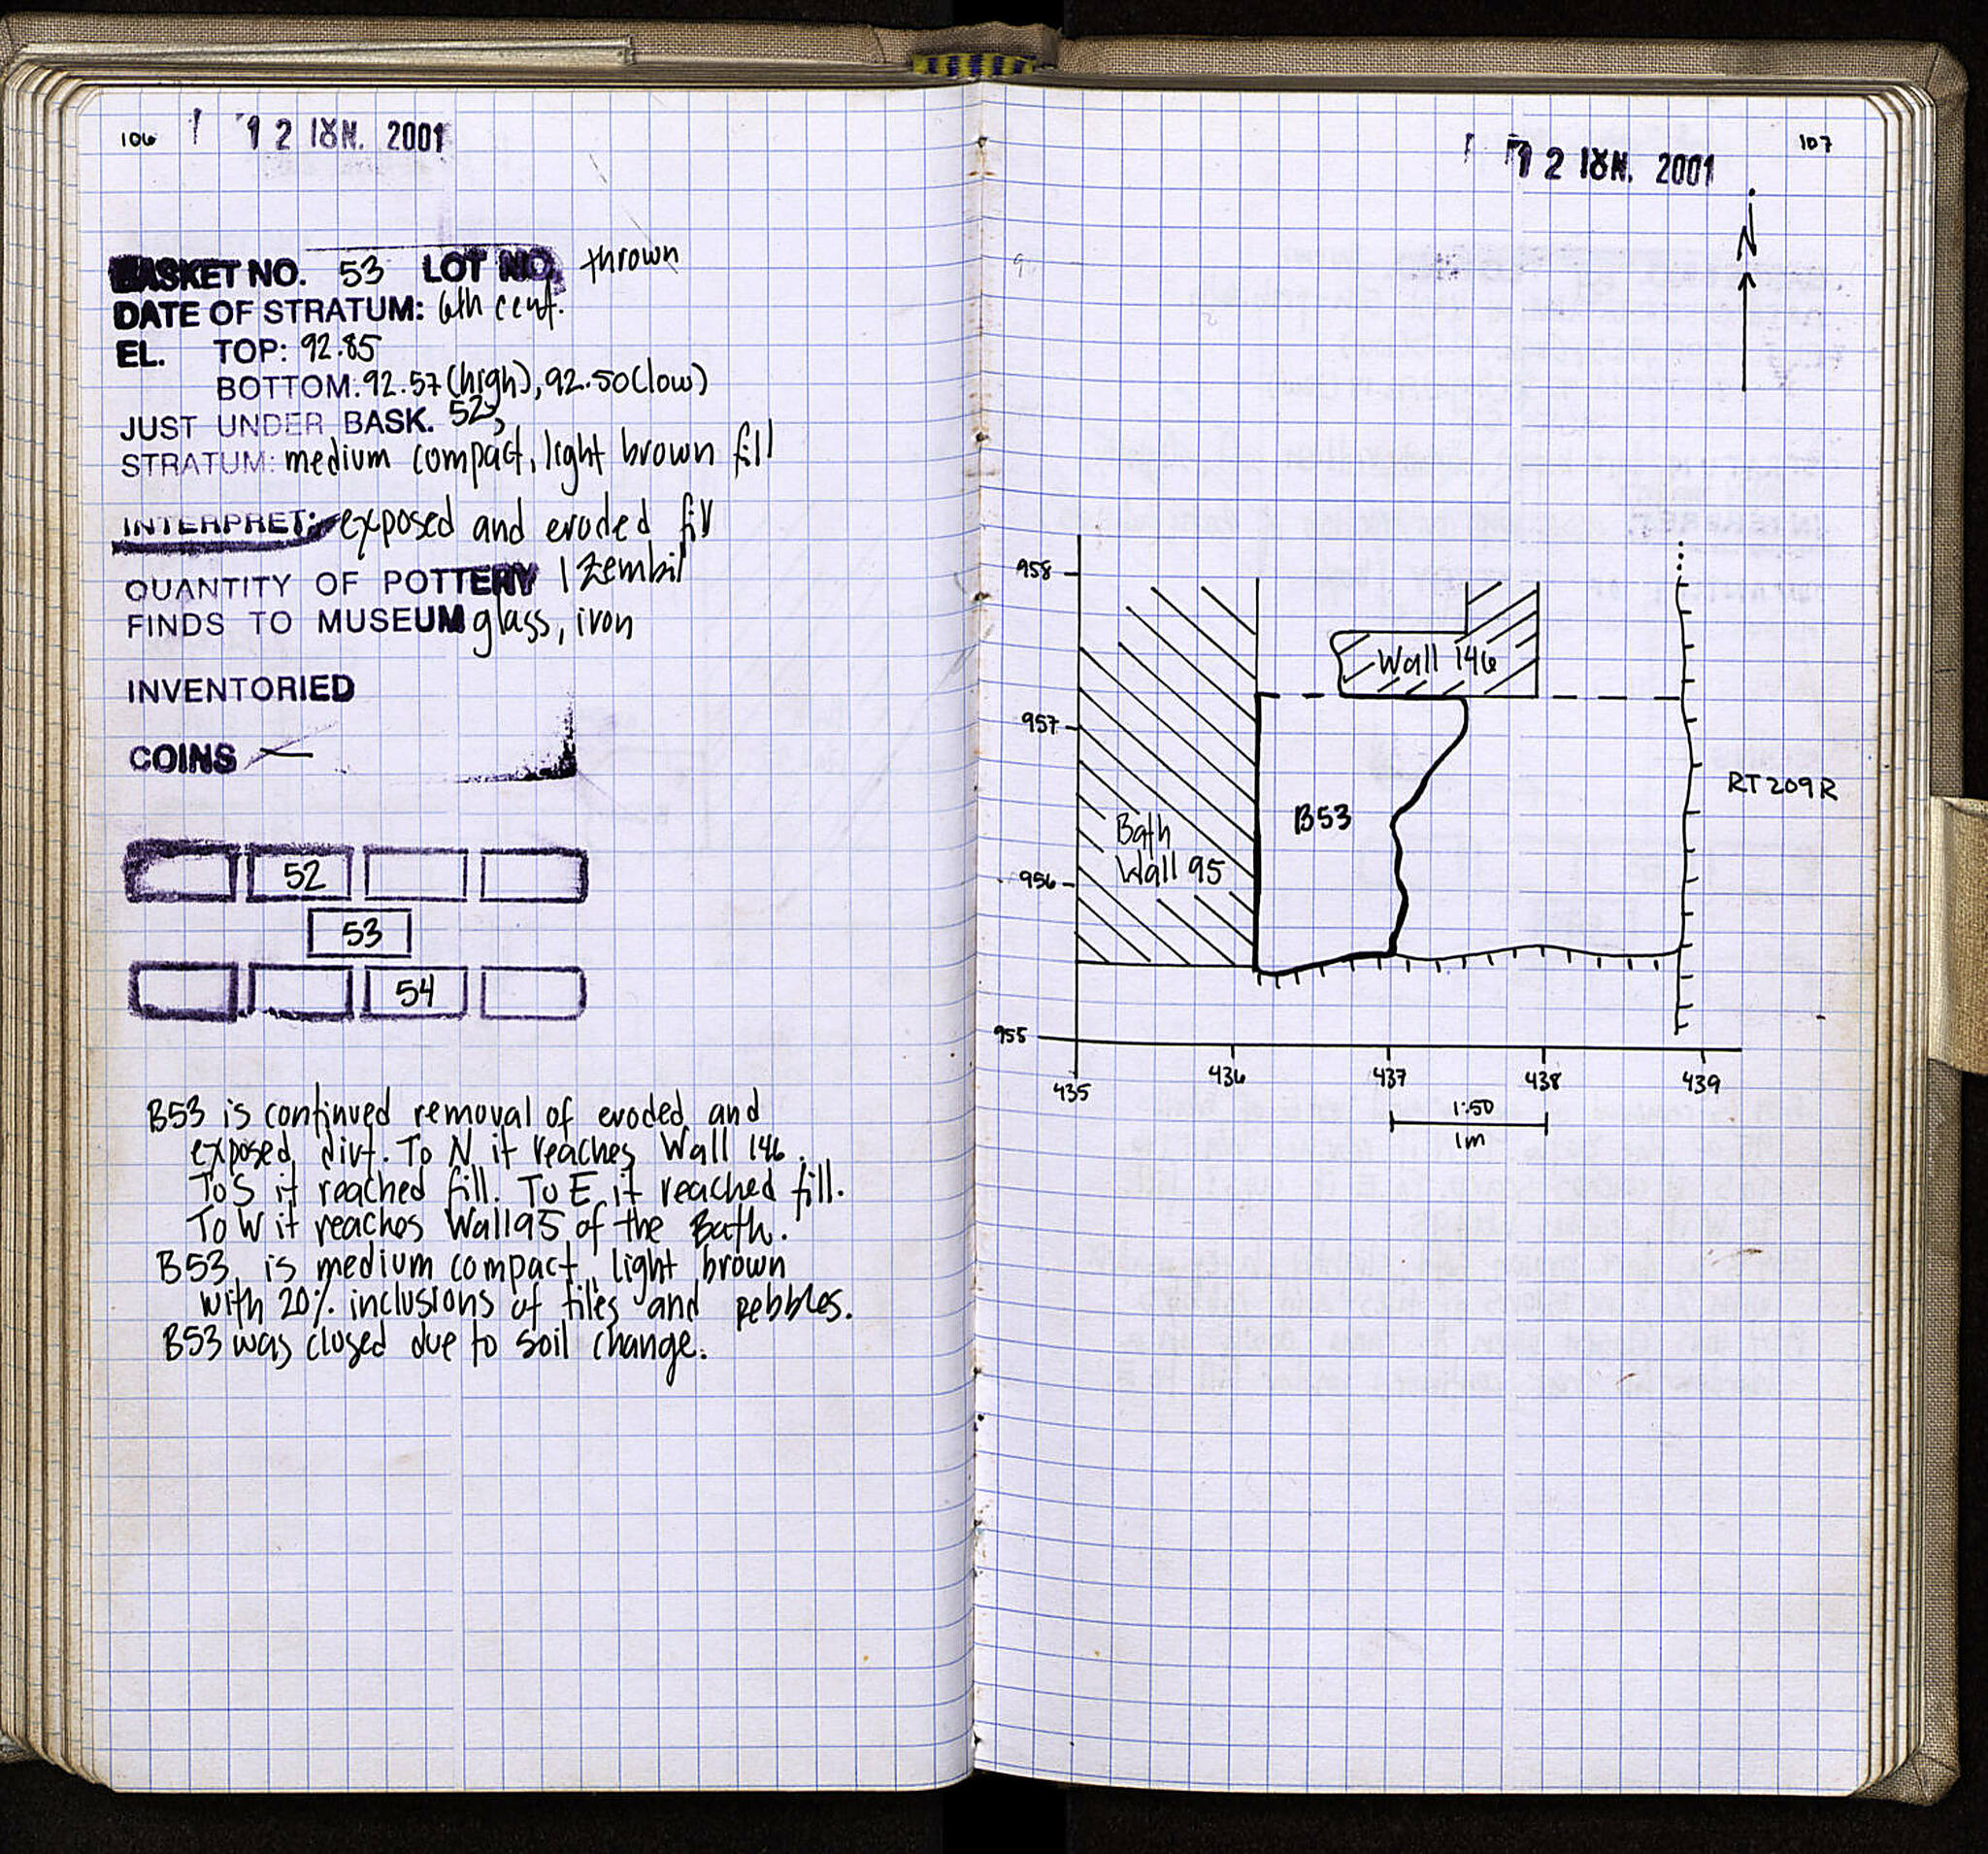 106 12 ΙΟΥΝ. 2001
BASKET NO. 53 LOT NO. thrown
DATE OF STRATUM: 6th cent.
EL. TOP: 92.85
BOTTOM: 92.57 (high), 92.50 (low)
JUST UNDER BASK. 52,
STRATUM: medium compact, light brown fill
INTERPRET: exposed and eroded fill
QUANTITY OF POTTERY 1 zembil
FINDS TO MUSEUM glass, iron
INVENTORIED
COINS —
52
53
54
B53 is continued removal of eroded and
exposed dirt. To N it reaches Wall 146.
To S it reached fill. To E it reached fill.
To W it reaches Wall 95 of the Bath.
B53 is medium compact light brown
with 20% inclusions of tiles and pebbles.
B53 was closed due to soil change.
12 ΙΟΥΝ. 2001 107
N
958
Wall 146
957
RT 209R
B53
Bath
Wall 95
956
955
435 436 437 438 439
1:50
1m